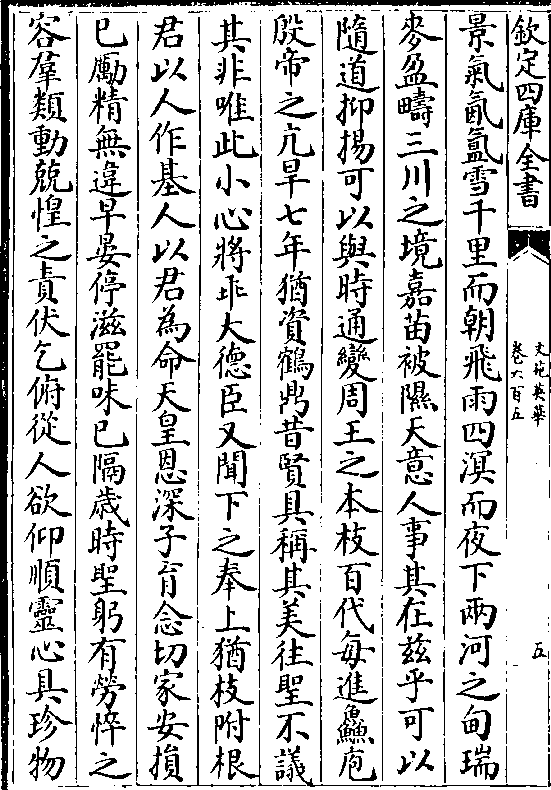 欽定四庫全書
文苑英華
卷六百五
五
景氣氤氳雪千里而朝飛雨四溟而夜下兩河之甸瑞
麥盈疇三川之境嘉苗被隰天意人事其在兹乎可以
隨道抑揚可以與時通變周王之本枝百代每進鱻庖
殷帝之亢旱七年猶資鶴鼎昔賢具稱其美往聖不議
其非唯此小心將乖大德臣又聞下之奉上猶枝附根
君以人作基人以君為命天皇恩深子育念切家安損
已勵精無違早晏停滋罷味已隔歲時聖躬有勞悴之
容羣類動兢惶之責伏乞俯從人欲仰順靈心具珍物